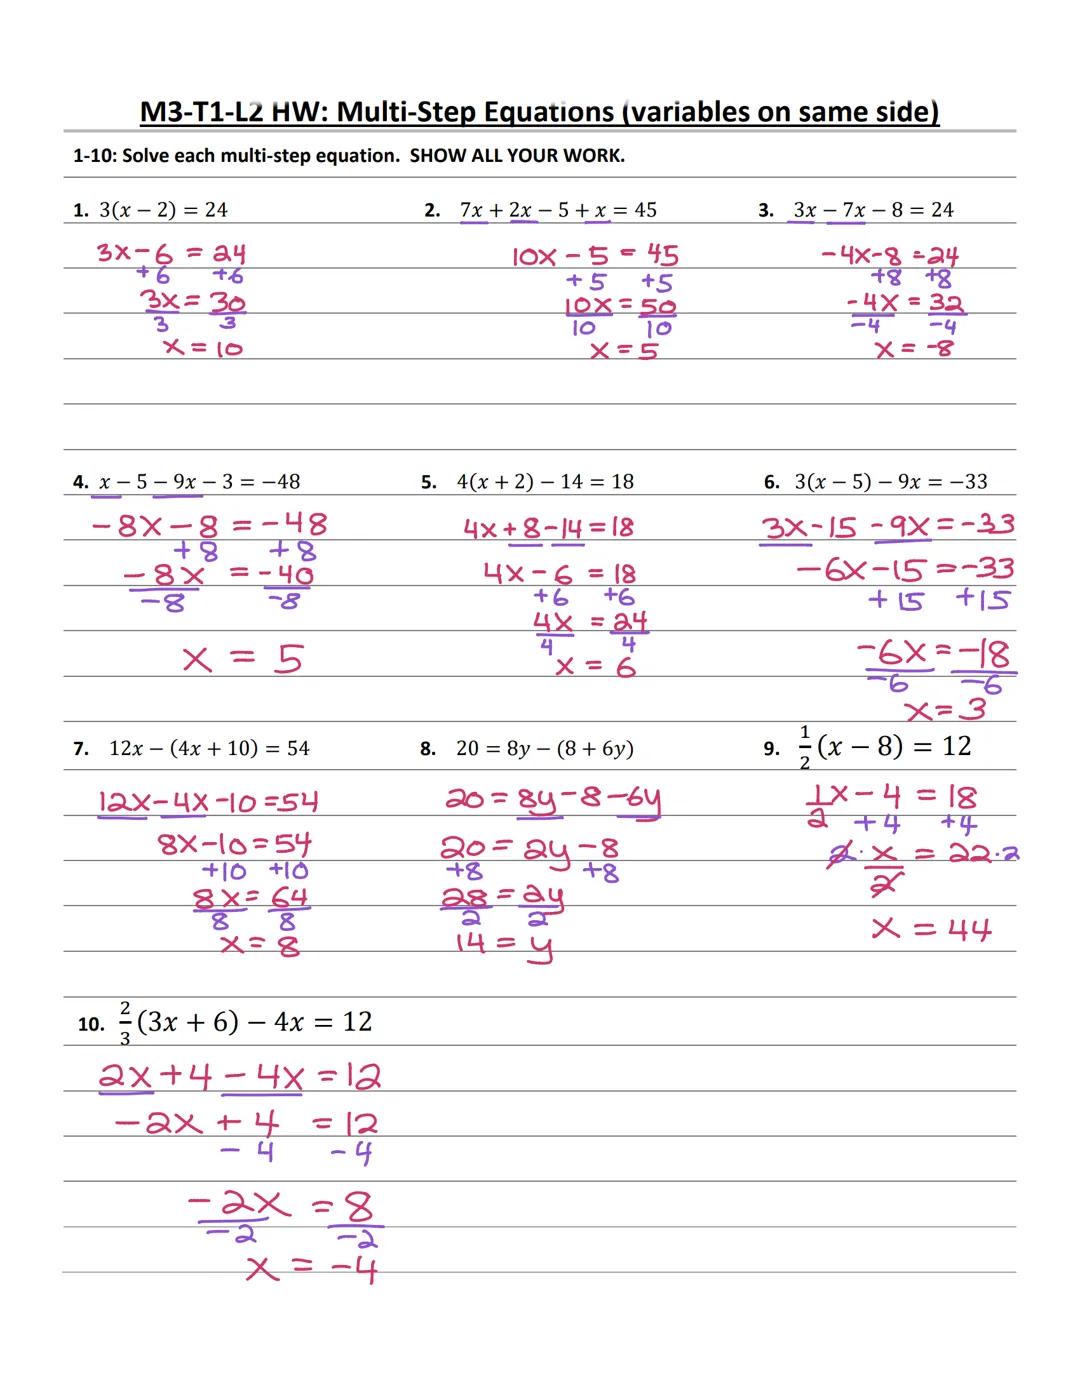 M3-T1-L2 HW: Multi-Step Equations (variables on same side)
1-10: Solve each multi-step equation.  SHOW ALL YOUR WORK.
1. 3(x − 2) = 24
3x − 6 = 24
+6 +6
3x = 30
3 3
x = 10
2. 7x + 2x − 5 + x = 45
10x − 5 = 45
+5 +5
10x = 50
10 10
x = 5
3. 3x − 7x − 8 = 24
-4x-8 = 24
+8 +8
-4x = 32
-4 -4
x = -8
4. x − 5 − 9x − 3 = −48
-8x - 8 = -48
+8 +8
-8x = -40
-8 -8
x = 5
5. 4(x + 2) − 14 = 18
4x + 8 - 14 = 18
4x - 6 = 18
+6 +6
4x = 24
4 4
x = 6
6. 3(x − 5) − 9x = −33
3x - 15 - 9x = -33
-6x - 15 = -33
+15 +15
-6x = -18
-6 -6
x = 3
7. 12x − (4x + 10) = 54
12x - 4x - 10 = 54
8x - 10 = 54
+10 +10
8x = 64
8 8
x = 8
8. 20 = 8y − (8 + 6y)
20 = 8y - 8 - 6y
20 = 2y - 8
+8 +8
28 = 2y
2 2
14 = y
9. 1/2 (x − 8) = 12
1/2 x - 4 = 18
+4 +4
2 · x/2 = 22 · 2
x = 44
10. 2/3 (3x + 6) − 4x = 12
2x + 4 - 4x = 12
-2x + 4 = 12
-4 -4
-2x = 8
-2 -2
x = -4